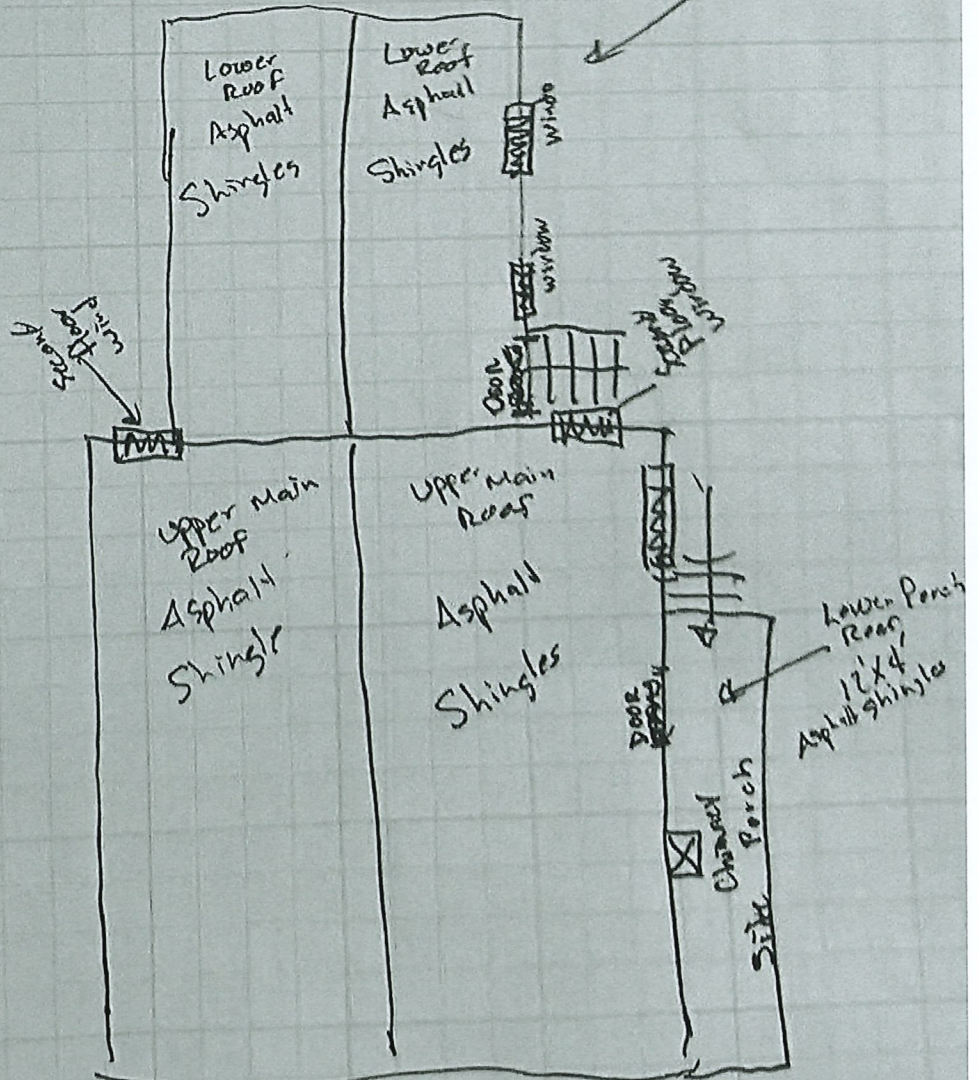 Lower
Roof
Asphalt
Shingles
Lower
Roof
Asphalt
Shingles
Windo
Window
Second
Floor
Wind
Second
Floor
Window
Door
Upper Main
Roof
Asphalt
Shingle
Upper Main
Roof
Asphalt
Shingles
Lower Porch
Roof
12'x4'
Asphalt Shingles
Door
Chimney
Side Porch